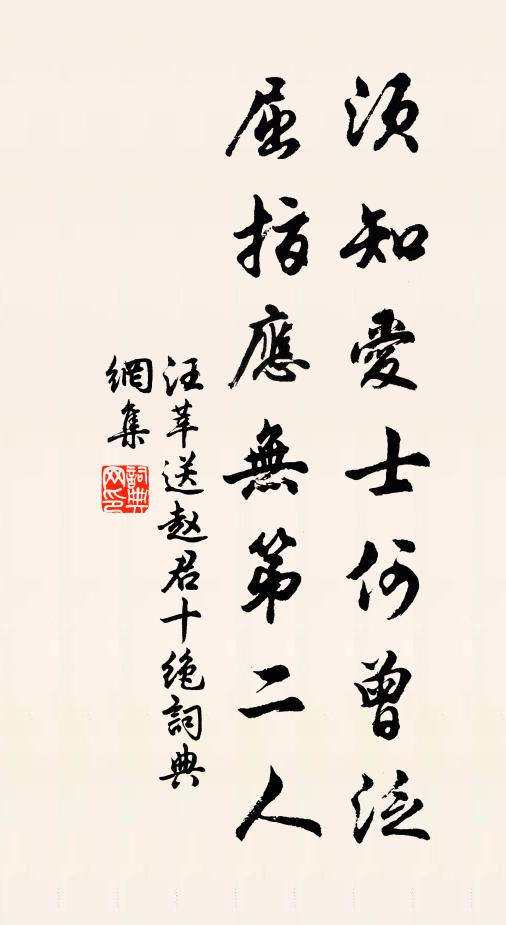 須知愛士何曾泛
屈指應無第二人
汪莘送赵君十绝詞典
網集
詞典網印